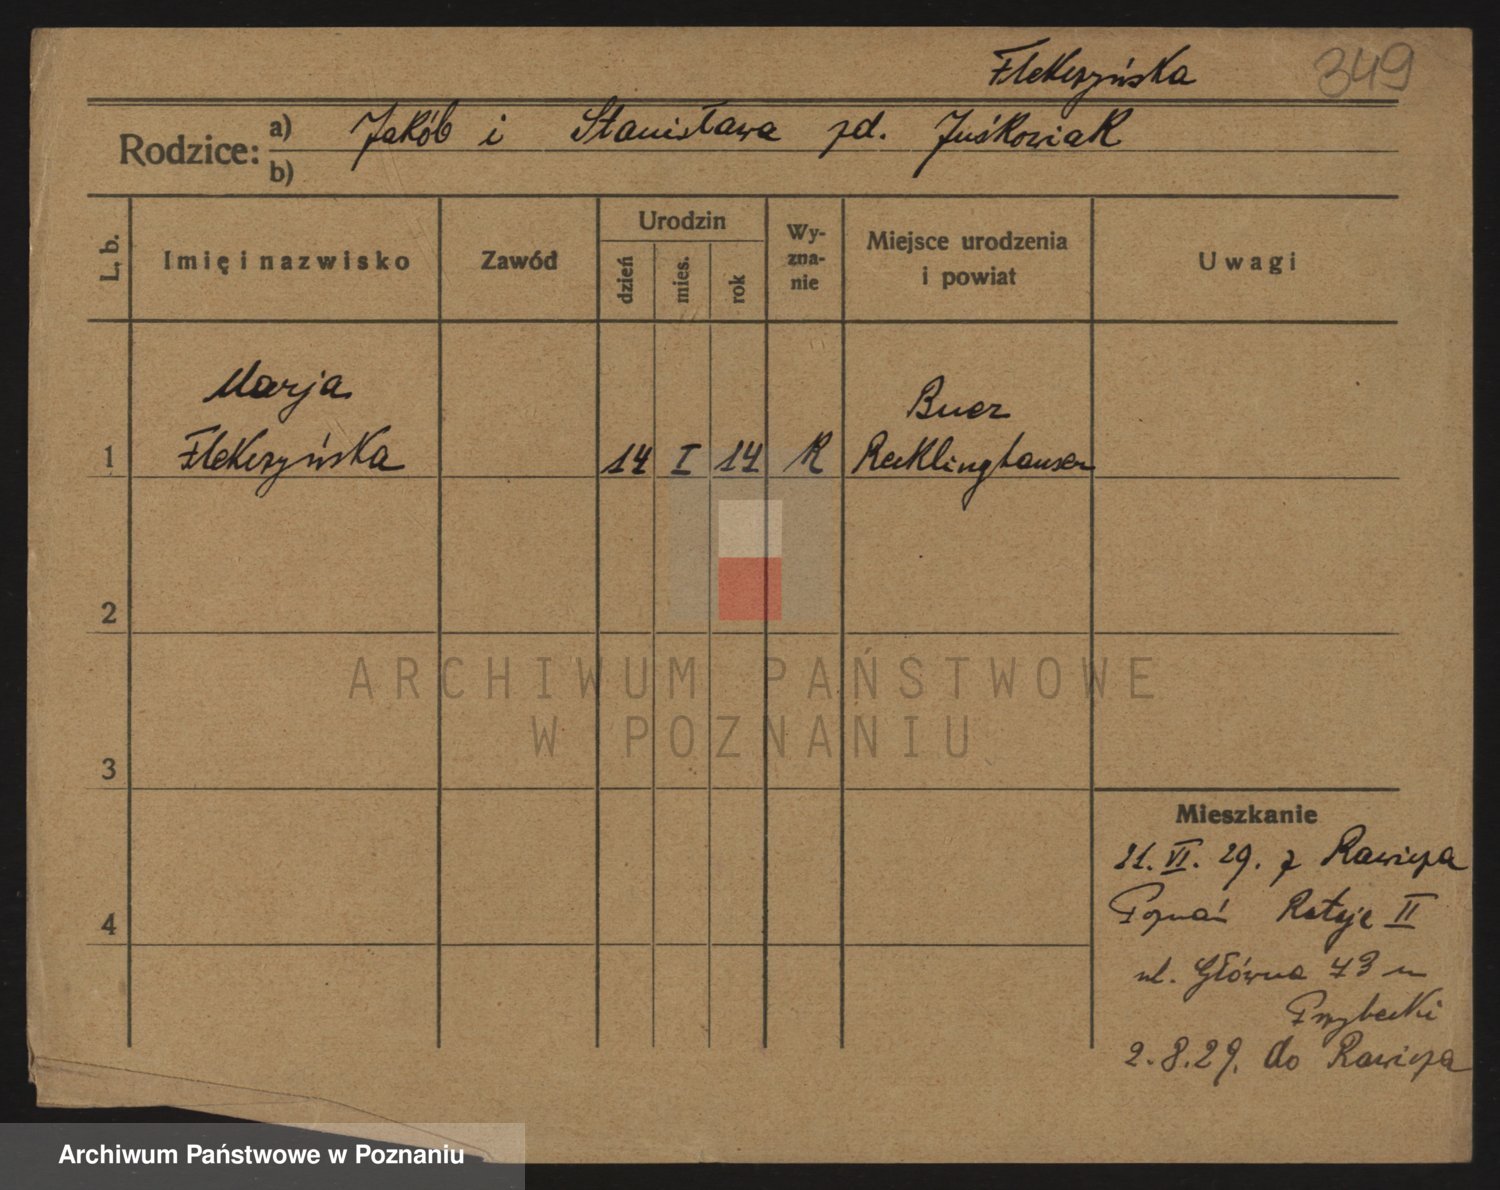 Flekszyńska 349
Rodzice: a) Jakób i Stanisława zd. Juśkowiak
b)
L. b. Imię i nazwisko Zawód Urodzin dzień mies. rok Wy-zna-nie Miejsce urodzenia i powiat Uwagi
Marja Buer
1 Flekszyńska 14 I 14 R Recklinghausen
2
ARCHIWUM PAŃSTWOWE
W POZNANIU
3
Mieszkanie
21. VI. 29. z Rawicza
4 Poznań Rataje II
ul. Główna 43 u
Przybecki
2.8.29. do Rawicza
Archiwum Państwowe w Poznaniu